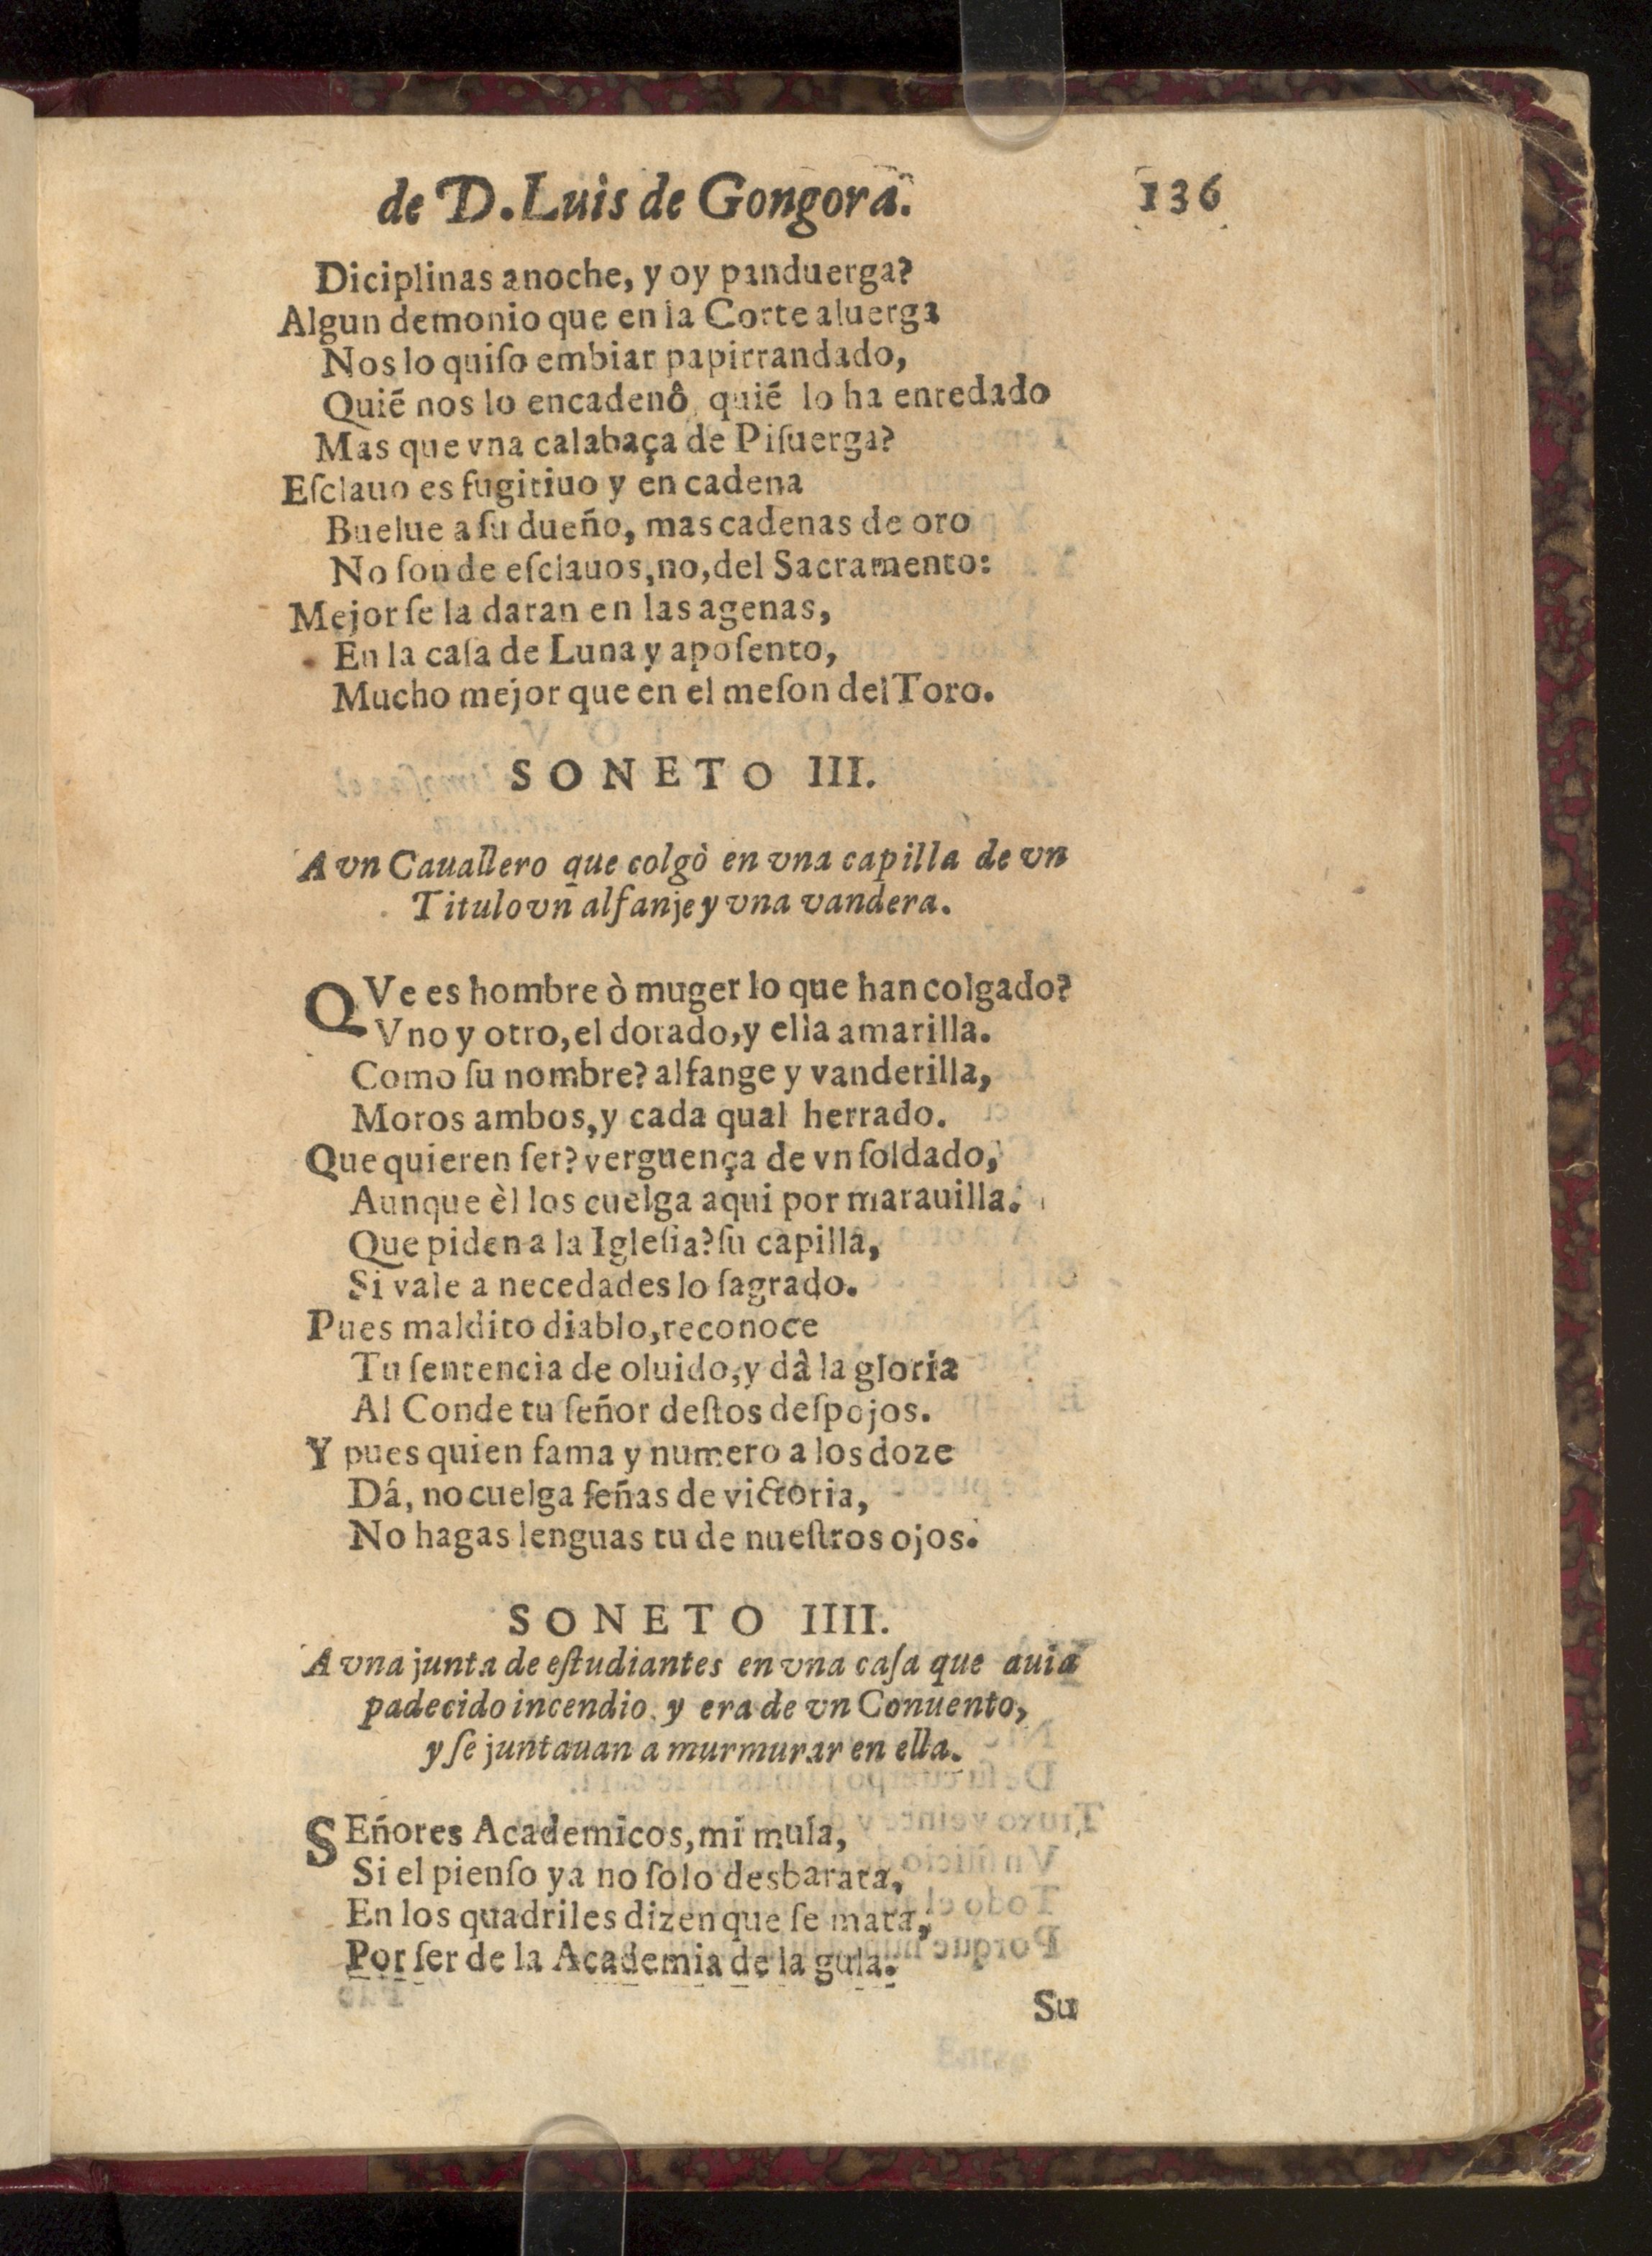 de D. Luis de Gongora. 136
Diciplinas anoche, y oy panduerga?
Algun demonio que en la Corte aluerga
Nos lo quiſo embiar papirrandado,
Quié nos lo encadenô, quié lo ha enredado
Mas que vna calabaça de Piſuerga?
Eſclauo es fugitiuo y en cadena
Buelue a ſu dueño, mas cadenas de oro
No ſon de eſclauos, no, del Sacramento:
Mejor ſe la daran en las agenas,
En la caſa de Luna y apoſento,
Mucho mejor que en el meſon del Toro.
SONETO III.
A vn Cauallero que colgò en vna capilla de vn
Titulo vn alfanje y vna vandera.
QVe es hombre ò muger lo que han colgado?
Vno y otro, el dorado, y ella amarilla.
Como ſu nombre? alfange y vanderilla,
Moros ambos, y cada qual herrado.
Que quieren ſer? verguença de vn ſoldado,
Aunque èl los cuelga aqui por marauilla.
Que piden a la Igleſia? ſu capilla,
Si vale a necedades lo ſagrado.
Pues maldito diablo, reconoce
Tu ſentencia de oluido, y dâ la gloria
Al Conde tu ſeñor deſtos deſpojos.
Y pues quien fama y numero a los doze
Dá, no cuelga ſeñas de victoria,
No hagas lenguas tu de nueſtros ojos.
SONETO IIII.
A vna junta de eſtudiantes en vna caſa que auia
padecido incendio, y era de vn Conuento,
y ſe juntauan a murmurar en ella.
SEñores Academicos, mi mula,
Si el pienſo ya no ſolo desbarata,
En los quadriles dizen que ſe mata,
Por ſer de la Academia de la gula.
Su